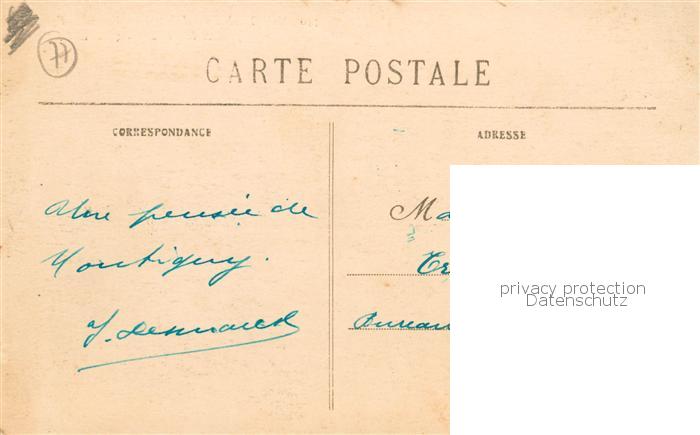 77
CARTE POSTALE
CORRESPONDANCE
ADRESSE
Une pensée de
Montigny.
J.
Ma
Bureau
privacy protection
Datenschutz